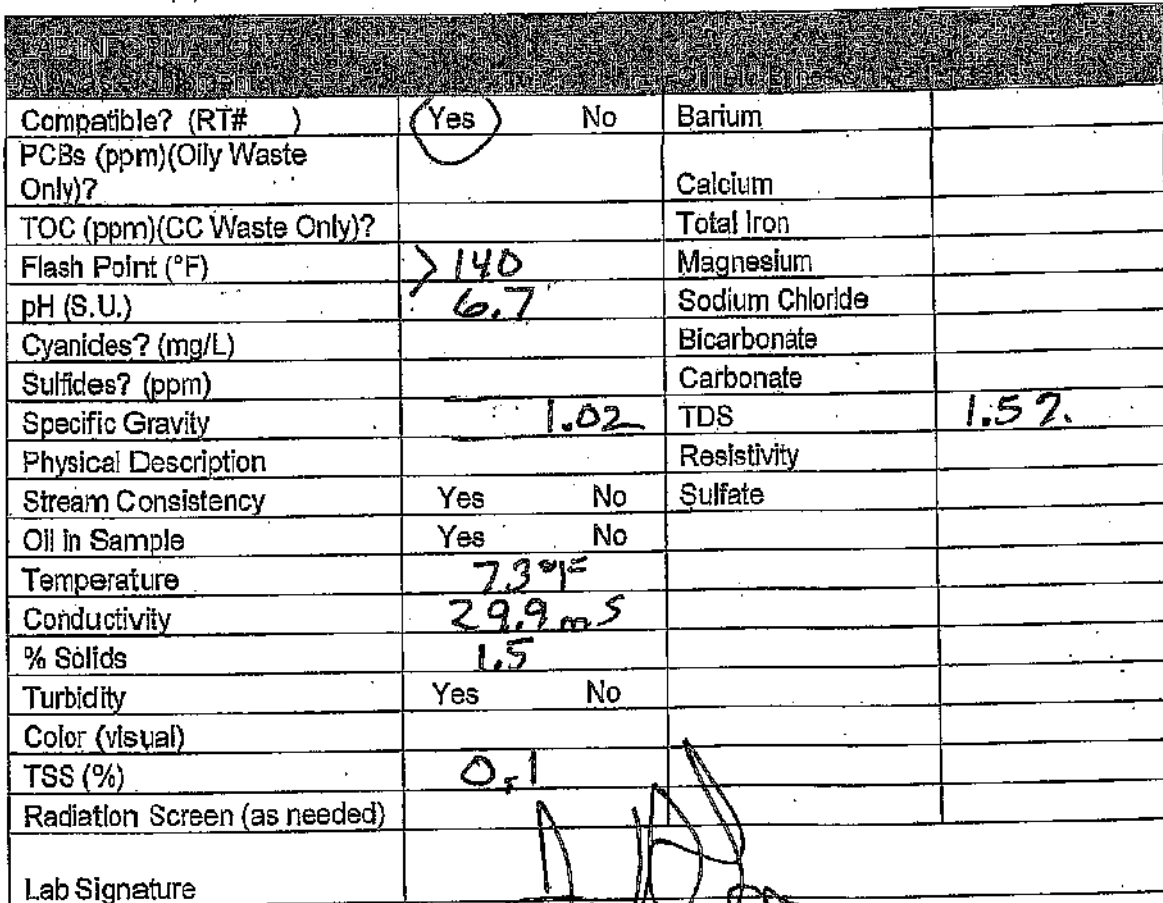 LAB INFORMATION
All Waste Shipments
Compatible? (RT# ) Yes No Barium
PCBs (ppm)(Oily Waste
Only)? Calcium
TOC (ppm)(CC Waste Only)? Total Iron
Flash Point (°F) >140 Magnesium
pH (S.U.) 6.7 Sodium Chloride
Cyanides? (mg/L) Bicarbonate
Sulfides? (ppm) Carbonate
Specific Gravity 1.02 TDS 1.5%
Physical Description Resistivity
Stream Consistency Yes No Sulfate
Oil in Sample Yes No
Temperature 73°F
Conductivity 29.9 mS
% Solids 1.5
Turbidity Yes No
Color (visual)
TSS (%) 0.1
Radiation Screen (as needed)
Lab Signature